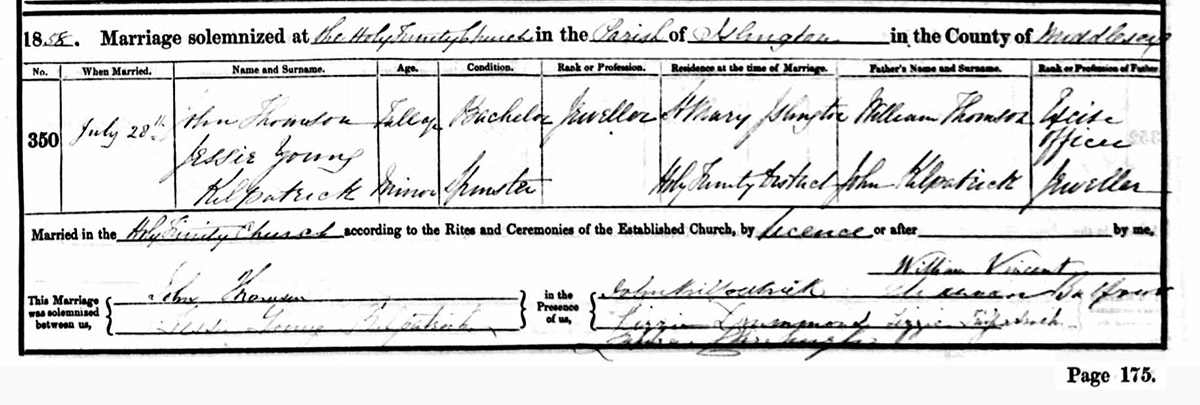 1858. Marriage solemnized at the Holy Trinity Church in the Parish of Islington in the County of Middlesex
No. When Married. Name and Surname. Age. Condition. Rank or Profession. Residence at the time of Marriage. Father's Name and Surname. Rank or Profession of Father.
350 July 28th John Thomson Full age Bachelor Jeweller St Mary Islington William Thomson Excise officer
Jessie Young
Kilpatrick Minor Spinster Holy Trinity District John Kilpatrick Jeweller
Married in the Holy Trinity Church according to the Rites and Ceremonies of the Established Church, by licence or after by me,
William Vincent
This Marriage was solemnized between us, John Thomson in the Presence of us, John Kilpatrick Balfour
Jessie Young Kilpatrick Lizzie Drummond Lizzie
Page 175.